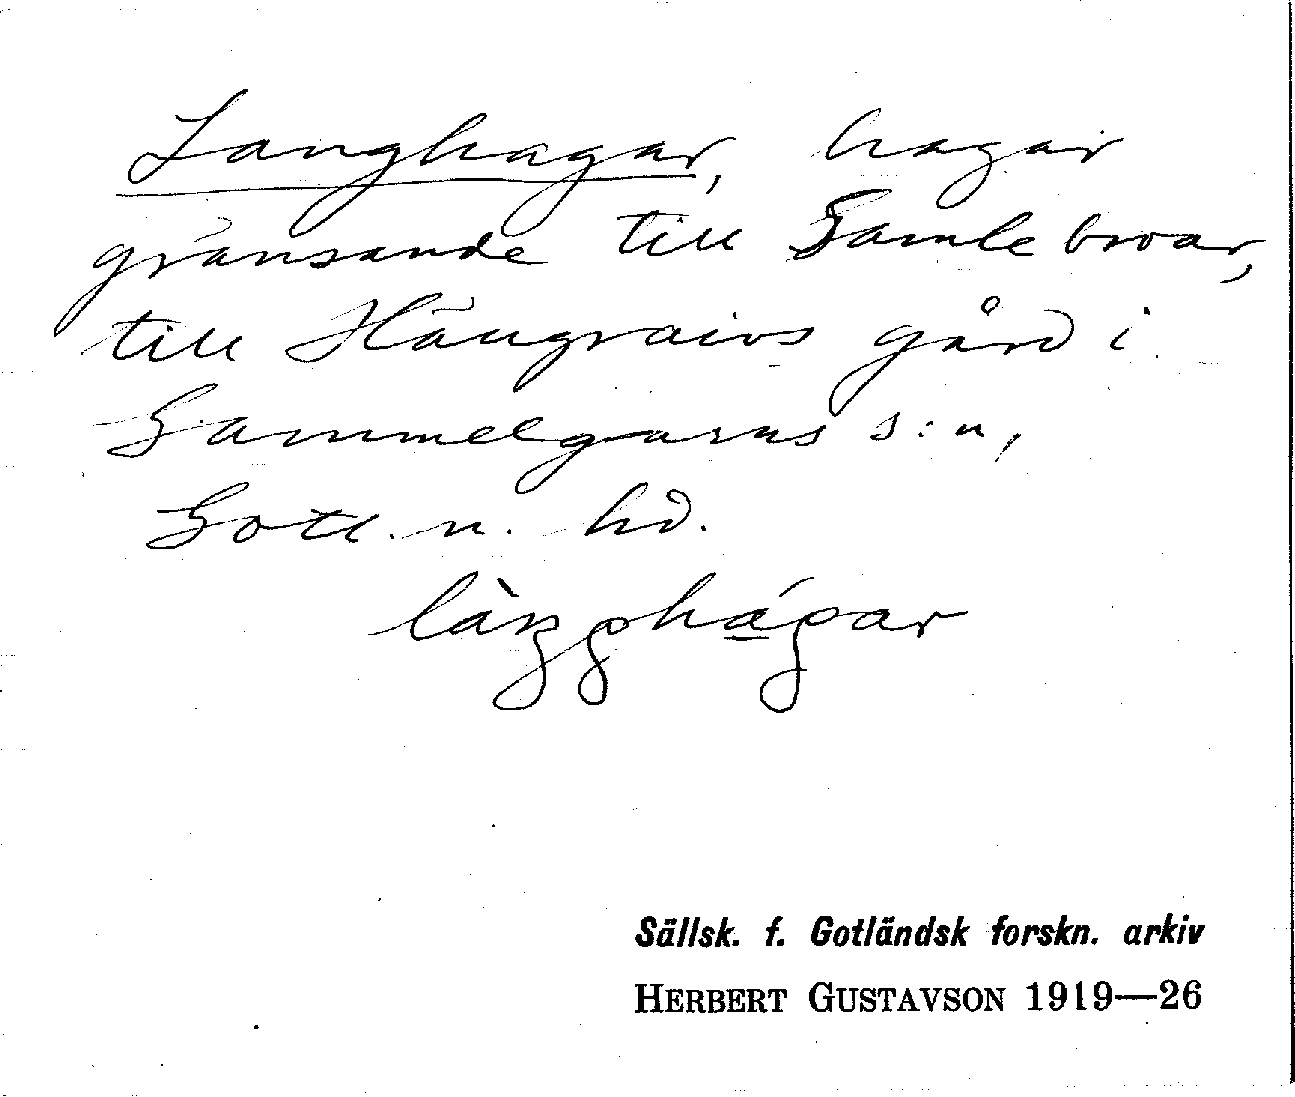 Langhagar, hagar
gränsande till Gamle broar,
till Hängraivs gård i
Gammelgarns s:n,
Gotl. n. hd.
Sällsk. f. Gotländsk forskn. arkiv
HERBERT GUSTAVSON 1919—26